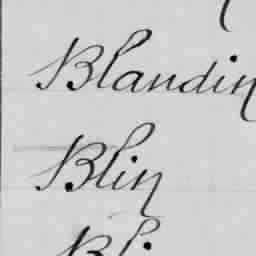 Blandin
Blin